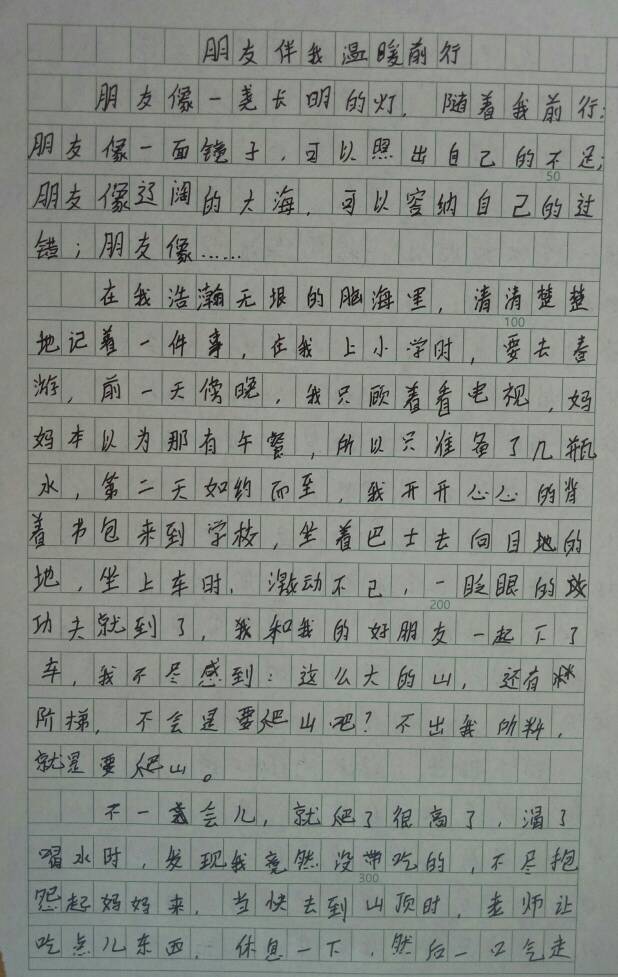 朋友伴我温暖前行
朋友像一尧长明的灯，随着我前行；
朋友像一面镜子，可以照出自己的不足；
50
朋友像辽阔的大海，可以容纳自己的过
错；朋友像……
在我浩瀚无垠的脑海里，清清楚楚
100
地记着一件事，在我上小学时，要去春
游，前一天傍晚，我只顾着看电视，妈
妈本以为那有午餐，所以只准备了几瓶
水，第二天如约而至，我开开心心的背
着书包来到学校，坐着巴士去向目地的
地，坐上车时，激动不已，一眨眼的
200
功夫就到了，我和我的好朋友一起下了
车，我不尽感到：这么大的山，还有
阶梯，不会是要爬山吧？不出我所料，
就是要爬山。
不一会儿，就爬了很高了，渴了
喝水时，发现我竟然没带吃的，不尽抱
300
怨起妈妈来，当快去到山顶时，老师让
吃点儿东西，休息一下，然后一口气走